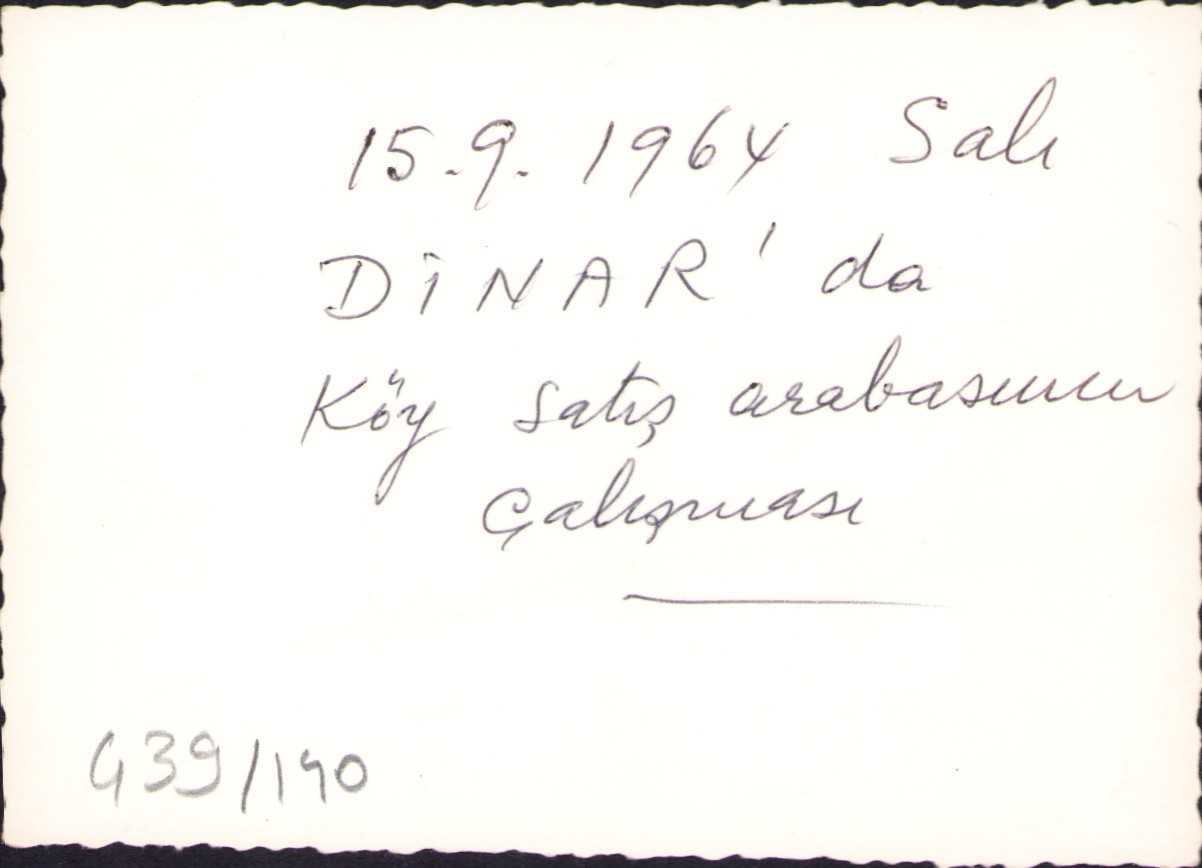 15.9.1964 Salı
DİNAR'da
Köy satış arabasının
Çalışması
G39/140